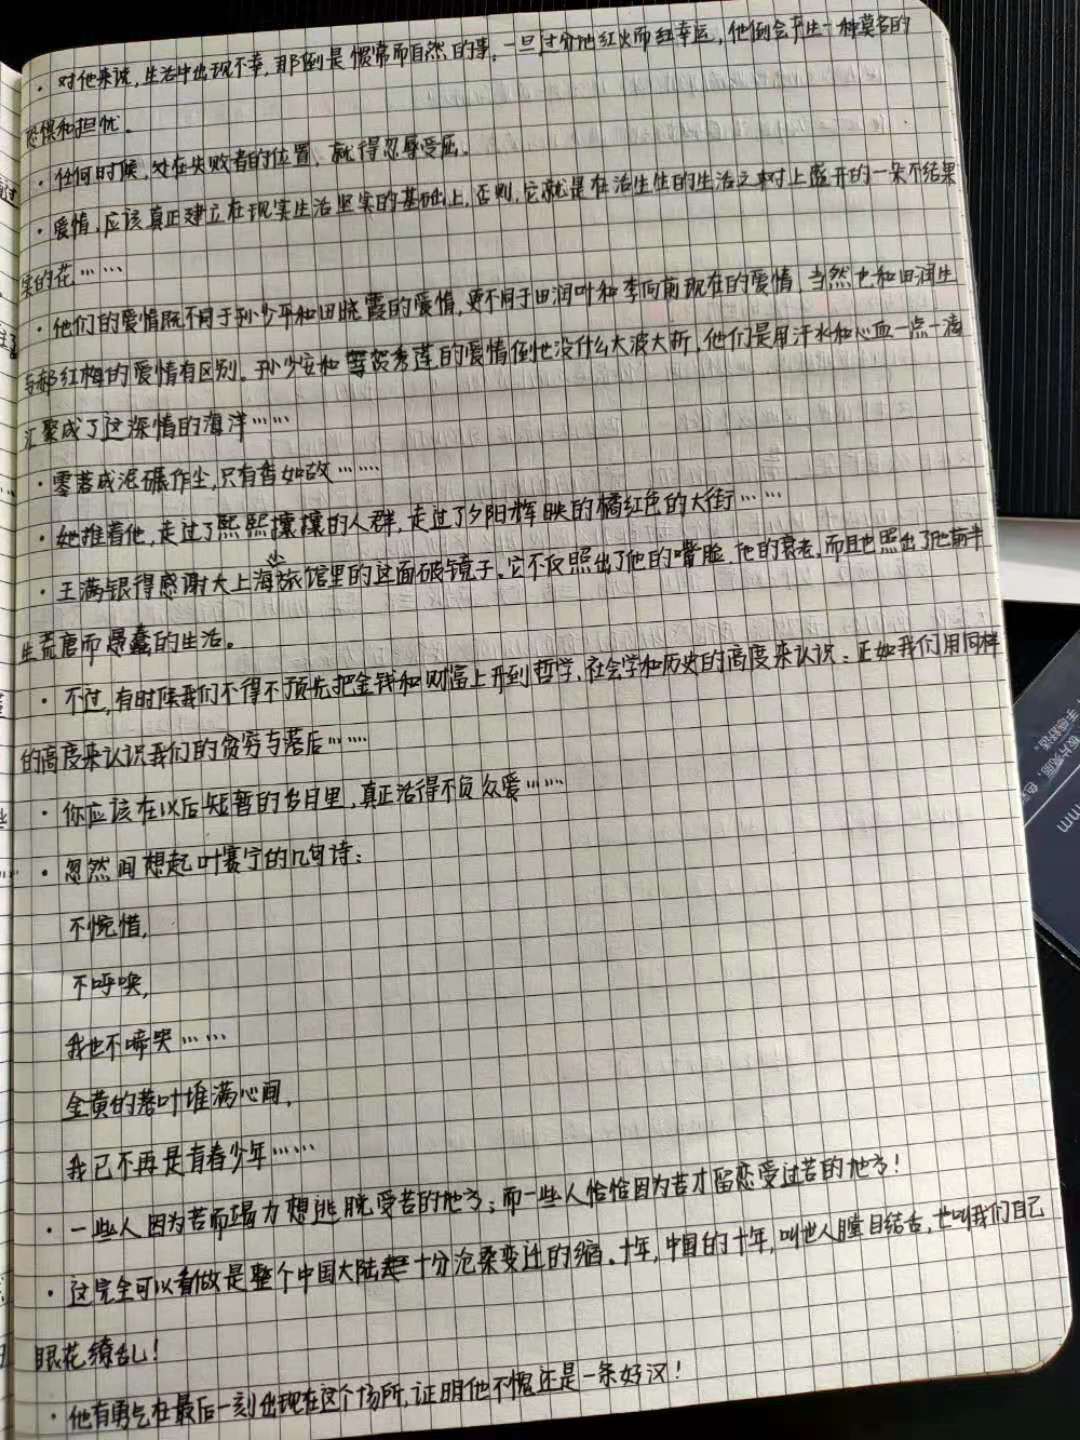 · 对他来说,生活中出现不幸,那倒是惯常而自然的事,一旦过分地红火而红幸运,他倒会产生一种莫名的
恐惧和担忧。
· 任何时候,处在失败者的位置,就得忍辱受屈。
· 爱情,应该真正建立在现实生活坚实的基础上,否则,它就是在活生生的生活之树上盛开的一朵不结果
实的花……
· 他们的爱情既不同于孙少平和田晓霞的爱情,更不同于田润叶和李向前现在的爱情,当然也和田润生
与郝红梅的爱情有区别。孙少安和贺秀莲的爱情倒也没什么大波大折,他们是用汗水和心血一点一滴
汇聚成了这深情的海洋……
· 零落成泥碾作尘,只有香如故……
· 她推着他,走过了熙熙攘攘的人群,走过了夕阳辉映的橘红色的大街……
· 王满银得感谢大上海旅馆里的这面破镜子。它不仅照出了他的嘴脸,他的衰老,而且也照出了他前半
生荒唐而愚蠢的生活。
· 不过,有时候我们不得不预先把金钱和财富上升到哲学、社会学和历史的高度来认识;正如我们用同样
的高度来认识我们的贫穷与落后……
· 你应该在以后短暂的岁月里,真正活得不负众爱……
· 忽然间想起叶赛宁的几句诗:
不惋惜,
不呼唤,
我也不啼哭……
金黄的落叶堆满心间,
我已不再是青春少年……
· 一些人因为苦而竭力想逃脱受苦的地方;而一些人恰恰因为苦才留恋受过苦的地方!
· 这完全可以看做是整个中国大陆十分沧桑变迁的缩。十年,中国的十年,叫世人瞠目结舌,也叫我们自己
眼花缭乱!
· 他有勇气在最后一刻出现在这个场所,证明他不愧还是一条好汉!
mm